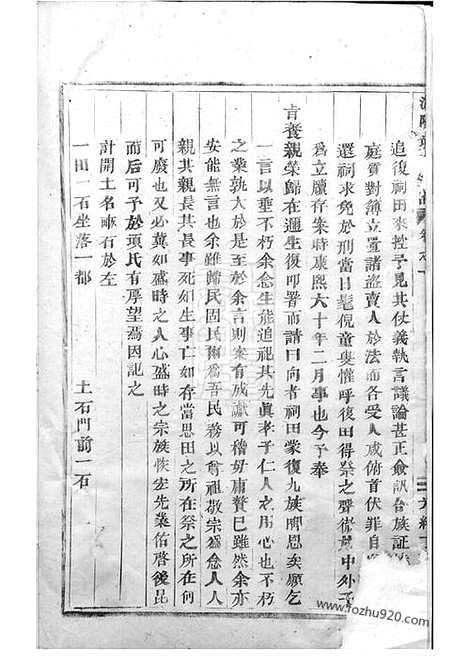 追復祠田來控予見其仗義執言議論甚正僉訊合族証
庭質對簿立置諸盜賣人於法而各受人咸俯首伏罪自
還祠求免於刑當日髦倪童叟懽呼復田得祭之聲徹中外予
爲立牘存案時康熙六十年二月事也今予奉
旨養親榮歸在邇生復叩署而請曰向者祠田蒙復九族啣恩矣願乞
一言以垂不朽余念生能追祀其先眞孝子仁人之用心也不朽
之業孰大於是至於余言則案有成讞可稽毋庸贅已雖然余亦
安能無言也余雖歸民固民爾爲吾民務以尊祖敬宗爲念人人
親其親長其長事死如生事亡如存當思田之所在祭之所在何
可廢也又必冀如盛時之人心盛時之宗族恢宏先業佑啓後昆
而后可予於項氏有厚望焉因記之
計開土名畝石於左
一田一石坐落一都 土石門前一石
www.fozhu920.com